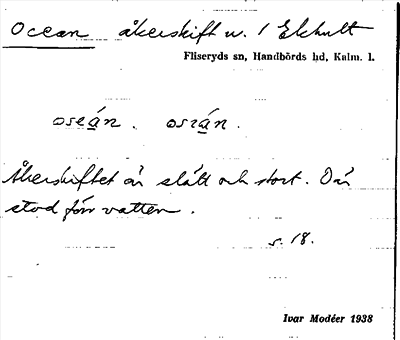 Ocean åkerskift u. 1 Ekhult
Fliseryds sn, Handbörds hd, Kalm. l.
oseán. osɪán.
Åkerskiftet är slätt och stort. Där
stod förr vatten.
s. 18.
Ivar Modéer 1938